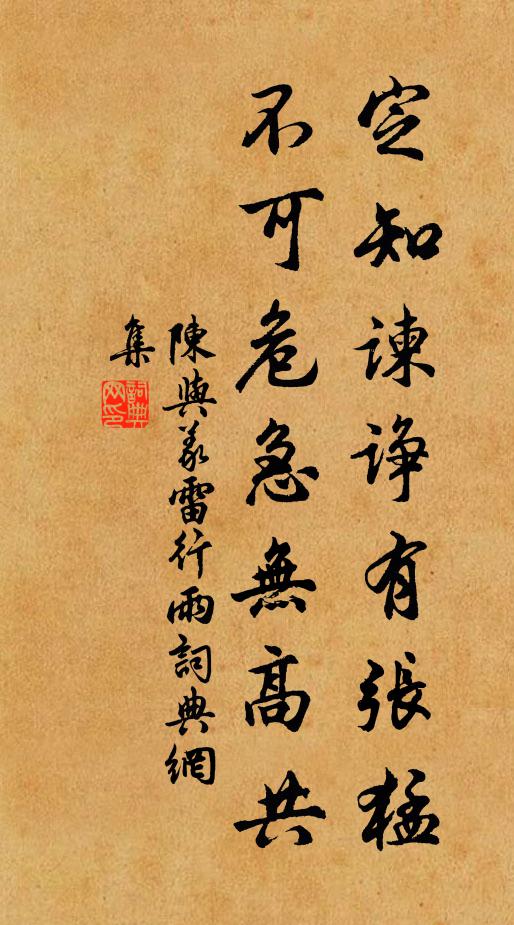 定知諫諍有張猛
不可危急無高共
陳與義雷行雨詞典網
集
詞典網印